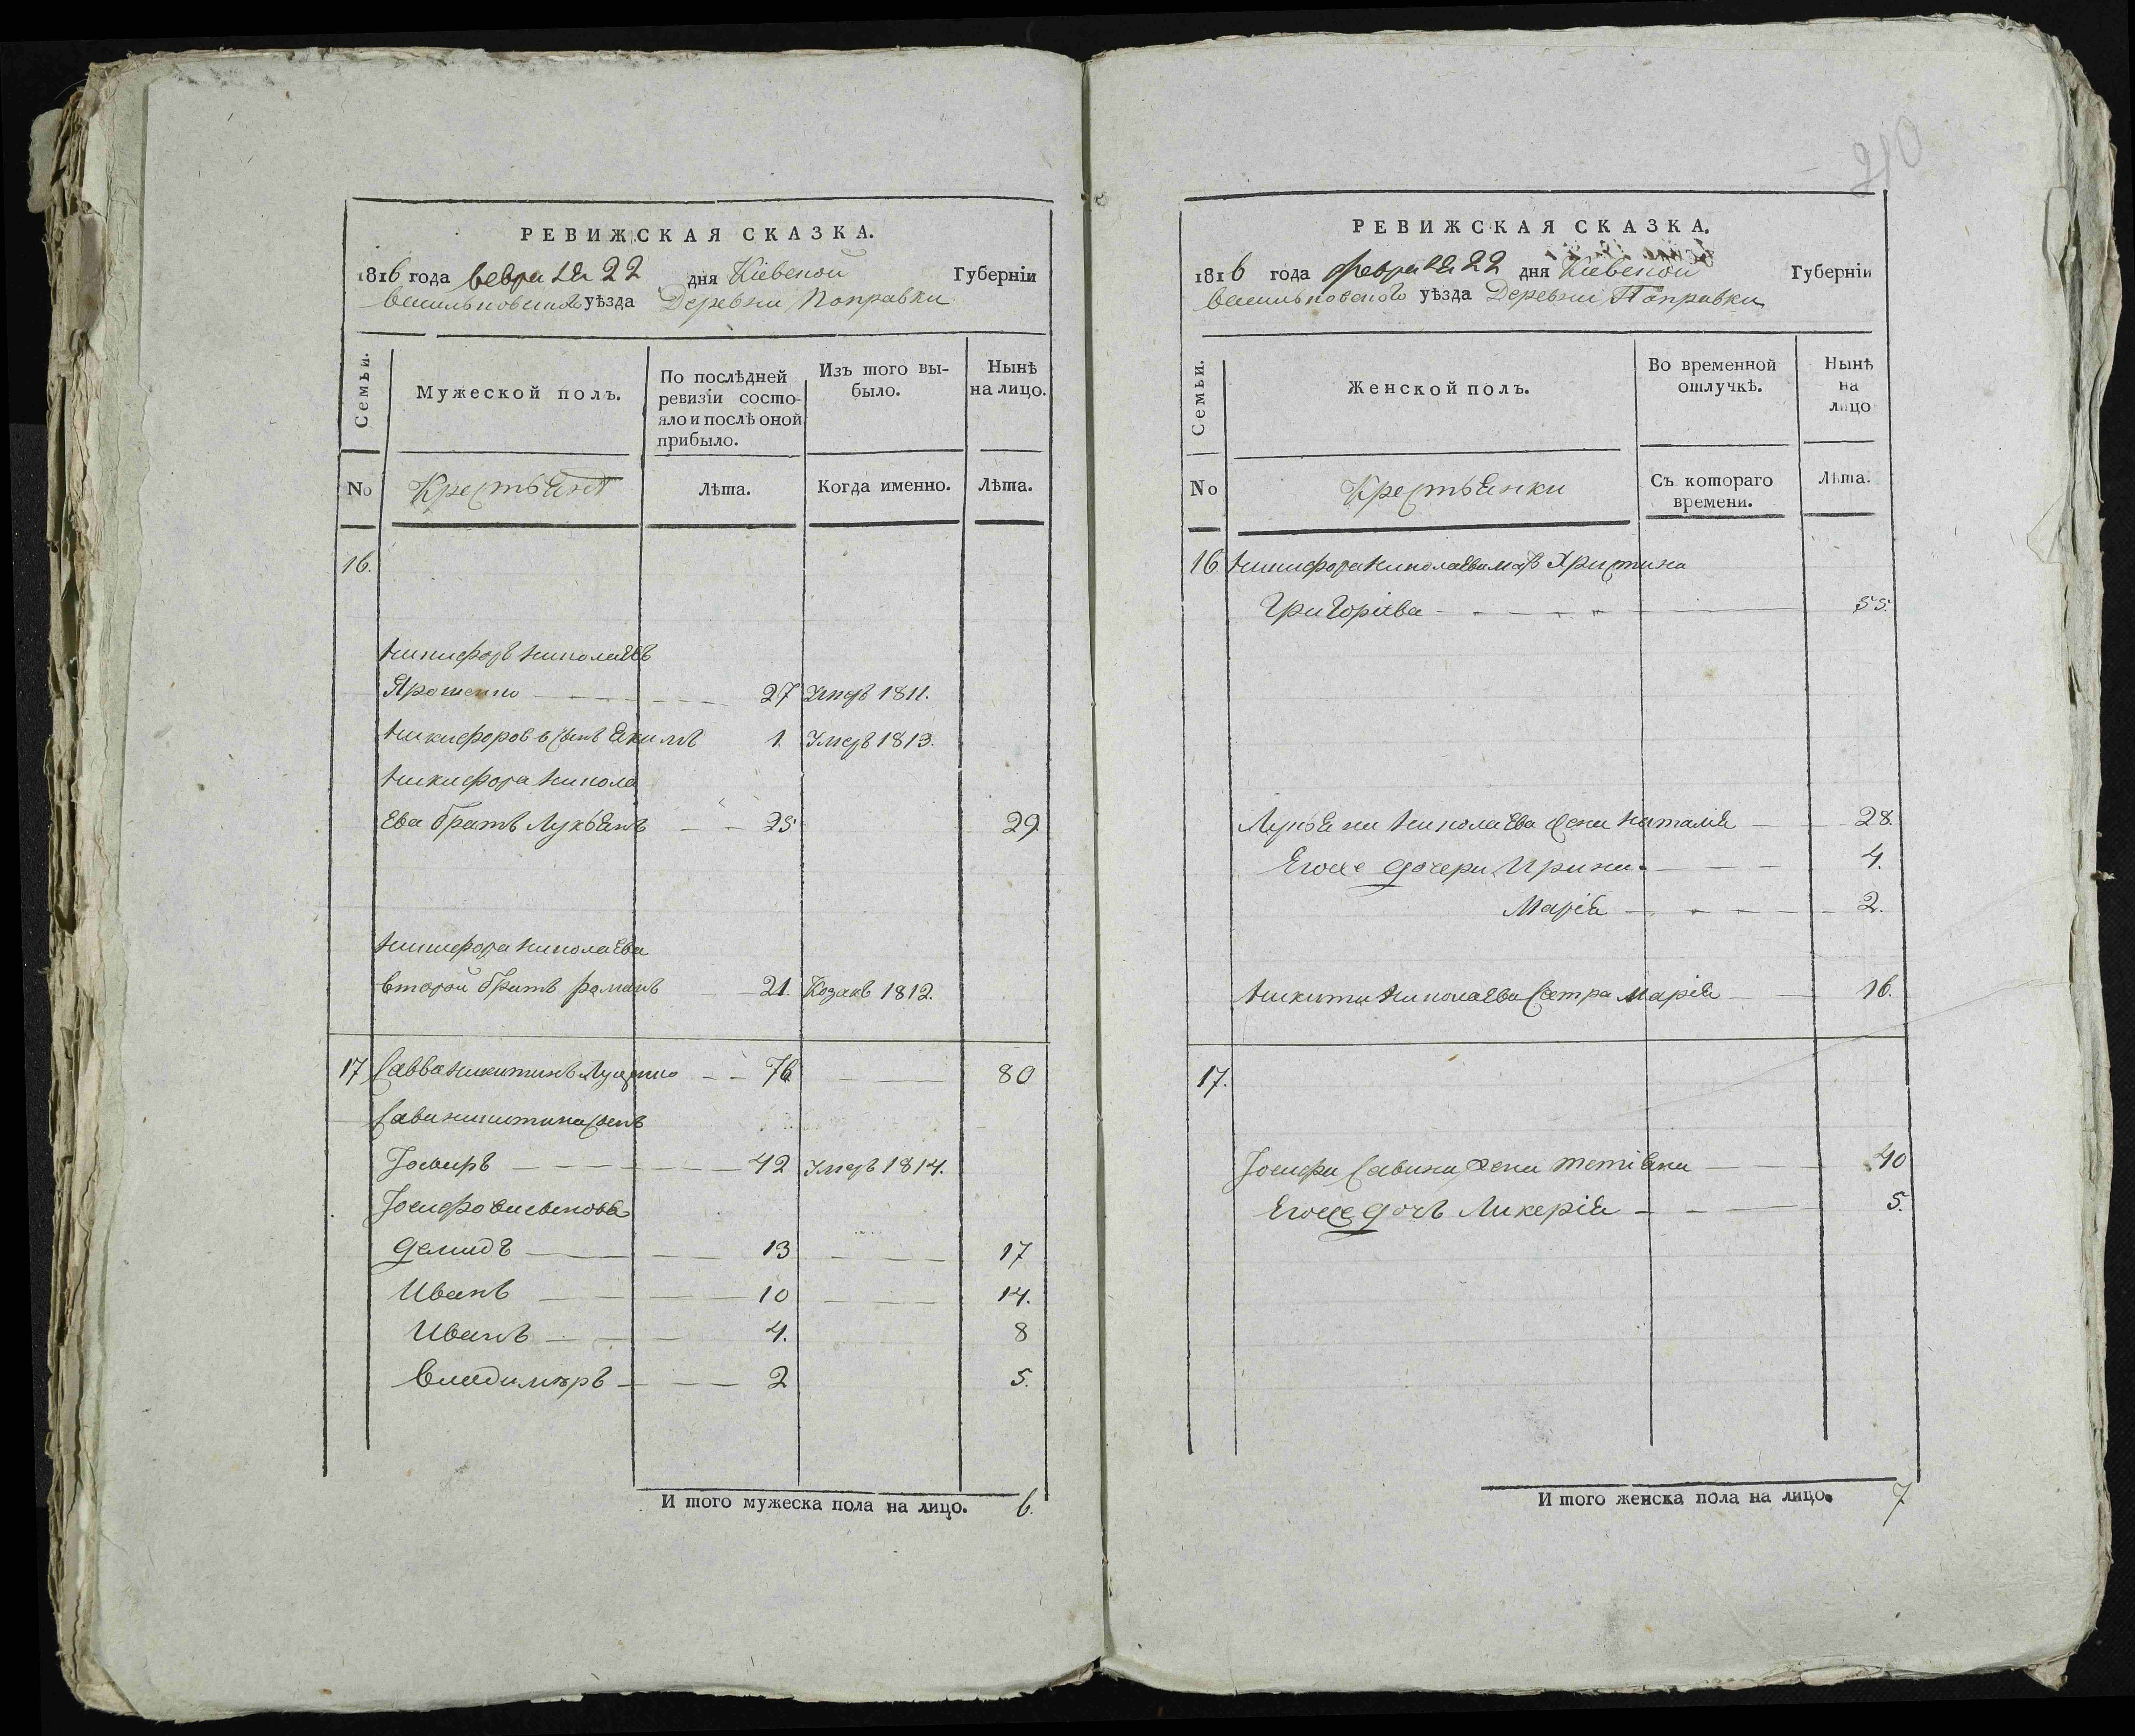 210
РЕВИЖСКАЯ СКАЗКА.
1816 года февраля 22 дня Кіевской Губерніи
Васильковского уѣзда Деревни Поправки
Семьи.
Мужеской полъ.
По послѣдней ревизіи состояло и послѣ оной прибыло.
Изъ того выбыло.
Нынѣ на лицо.
No Крестьянѣ Лѣта. Когда именно. Лѣта.
16.
Никифоръ Николаевъ
Ярошенко 27 Умеръ 1811.
Никифоровъ сынъ Екимъ 1. Умеръ 1813.
Никифора Никола
ева братъ Лукьянъ 25 29
Никифора Николаева
второй братъ Романъ 21. Козакъ 1812.
17 Савва Никитинъ 76 80
Сави Никитина сынъ
Іосифъ 42 Умеръ 1814.
Іосифови сыновья
Демидъ 13 17
Иванъ 10 14.
Иванъ 4. 8
Владимиръ 2 5.
И того мужеска пола на лицо. 6.
РЕВИЖСКАЯ СКАЗКА.
1816 года февраля 22 дня Кіевской Губерніи
Васильковского уѣзда Деревни Поправки
Семьи.
Женской полъ.
Во временной отлучкѣ.
Нынѣ на лицо
No Крестьянки Съ котораго времени. Лѣта.
16 Никифора Николаева мать Христина
Григоріева 55.
Лукьяна Николаева жена Наталія 28.
Егоже дочери Ирина 4.
Марія 2.
Никити Николаева сестра Марія 16.
17.
Іосифа Савина жена Тетіяна 40
Егоже дочь Ликерія 5.
И того женска пола на лицо. 7